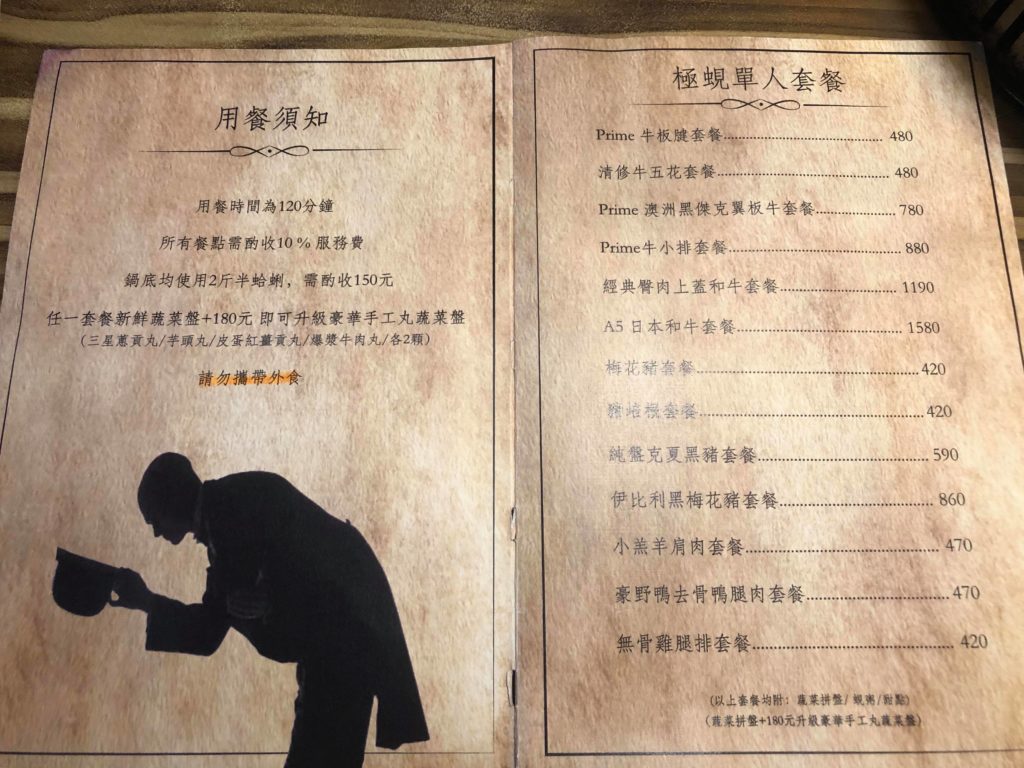 用餐須知
用餐時間為120分鐘
所有餐點需酌收10 % 服務費
鍋底均使用2斤半蛤蜊，需酌收150元
任一套餐新鮮蔬菜盤+180元 即可升級豪華手工丸蔬菜盤
(三星蔥貢丸/芋頭丸/皮蛋紅薑貢丸/爆漿牛肉丸/各2顆)
請勿攜帶外食
極蜆單人套餐
Prime 牛板腱套餐 480
清修牛五花套餐 480
Prime 澳洲黑傑克翼板牛套餐 780
Prime牛小排套餐 880
經典臀肉上蓋和牛套餐 1190
A5 日本和牛套餐 1580
梅花豬套餐 420
套餐 420
純盤克夏黑豬套餐 590
伊比利黑梅花豬套餐 860
小羔羊肩肉套餐 470
豪野鴨去骨鴨腿肉套餐 470
無骨雞腿排套餐 420
(以上套餐均附：蔬菜拼盤/ 蜆粥/甜點)
(蔬菜拼盤+180元升級豪華手工丸蔬菜盤)